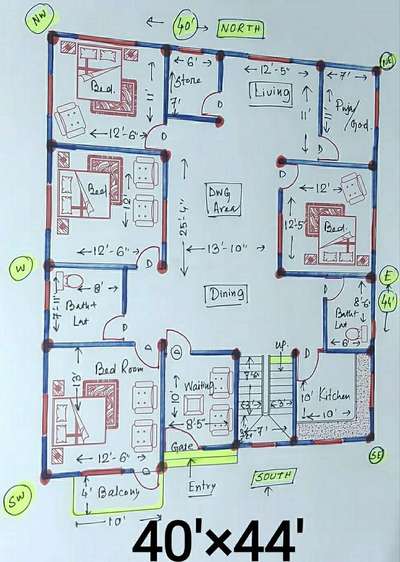 NW
40'
NORTH
NE
6'
Store
7'
12'-5"
Living
11'
7'
11'
D
D
Bed.
11'
12'-6"
D
D
Bed
12'
12'-6"
D
25'-4"
DWG
Area
13'-10"
D
12'
12'-5"
Bed.
W
E
44'
8'
7'-11"
Bath+
Lat
D
Dining
8'-6"
Bath+
Lat
6'
D
Bed Room
13'
12'-6"
D
D
D
Waiting
10'
8'-5"
Gate
up.
7'-8"
3'
3'
7'
D
10'
Kitchen
10'
SW
4'
Balcony
10'
Entry
SOUTH
SE
40'×44'